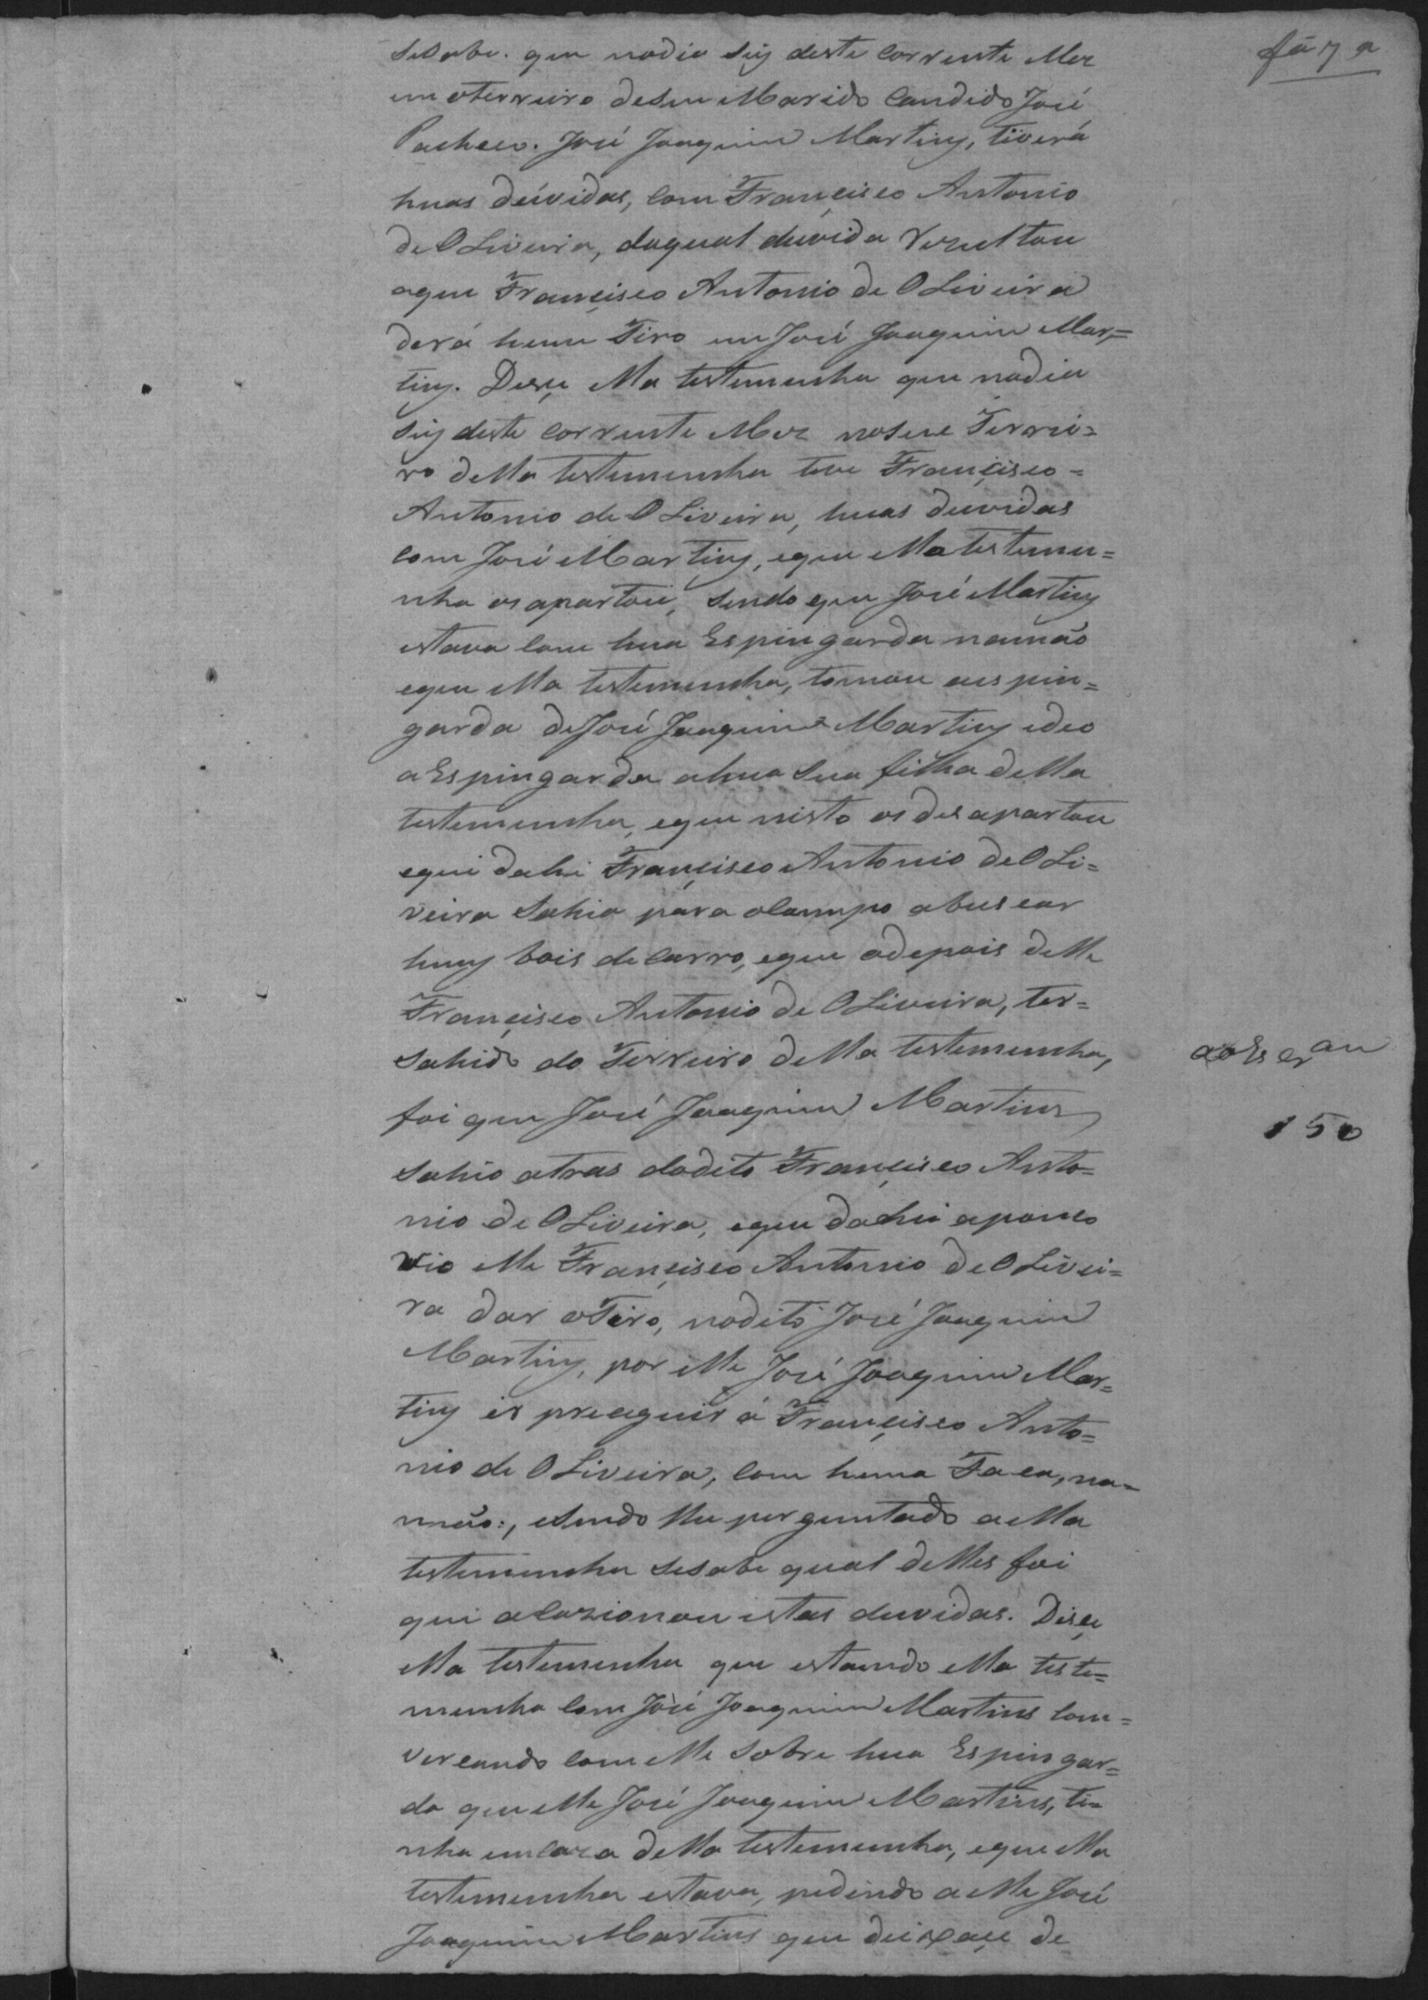 sesabe. que nodia seis deste corrente Mez
em oterreiro deseu Marido Candido José
Pacheco. José Joaquim Martins, tiverá
huas duvidas, com Françisco Antonio
de OLiveira, daqual duvida Rezultou
aque Françisco Antonio de OLiveira
derá hum Tiro em José Joaquim Mar=
tins. Disçe ella testemunha que nodia
seis deste corrente Mez noseu Terrei=
ro della testemunha teve Françisco=
Antonio de OLiveira, huas duvidas
com José Martins, eque ella testemu=
nha os apartou, sendo que José Martins
estava com hua Espingarda namão
eque ella testemunha, tomou aespin=
garda deJosé Joaquim Martins edeo
aEspingarda ahua sua filha della
testemunha, eque nisto os desapartou
equi dahi Françisco Antonio de OLi=
veira sahio para oCampo abuscar
huns bois de Carro, eque adepois delle
Françisco Antonio de OLiveira, ter=
sahido do Terreiro della testemunha,
foi que José Joaquim Martins
sahio atras dodito Françisco Anto=
nio de OLiveira, eque dahi apouco
vio elle Françisco Antonio de OLivei=
ra dar oTiro, nodito José Joaquim
Martins, por elle José Joaquim Mar=
tins ir preceguir á Françisco Anto=
nio de OLiveira, com huma Faca, na=
mão:, esendo lhe perguntado aella
testemunha sesabe qual delles foi
qui acazionou estas duvidas. Disçe
ella testemunha que estando ella teste=
munha com José Joaquim Martins com=
verçando com elle sobre hua Espingar=
da que elle José Joaquim Martins, ti=
nha emcaza della testemunha, eque ella
testemunha estava, pedindo aelle José
Joaquim Martins que deixaçe de
150